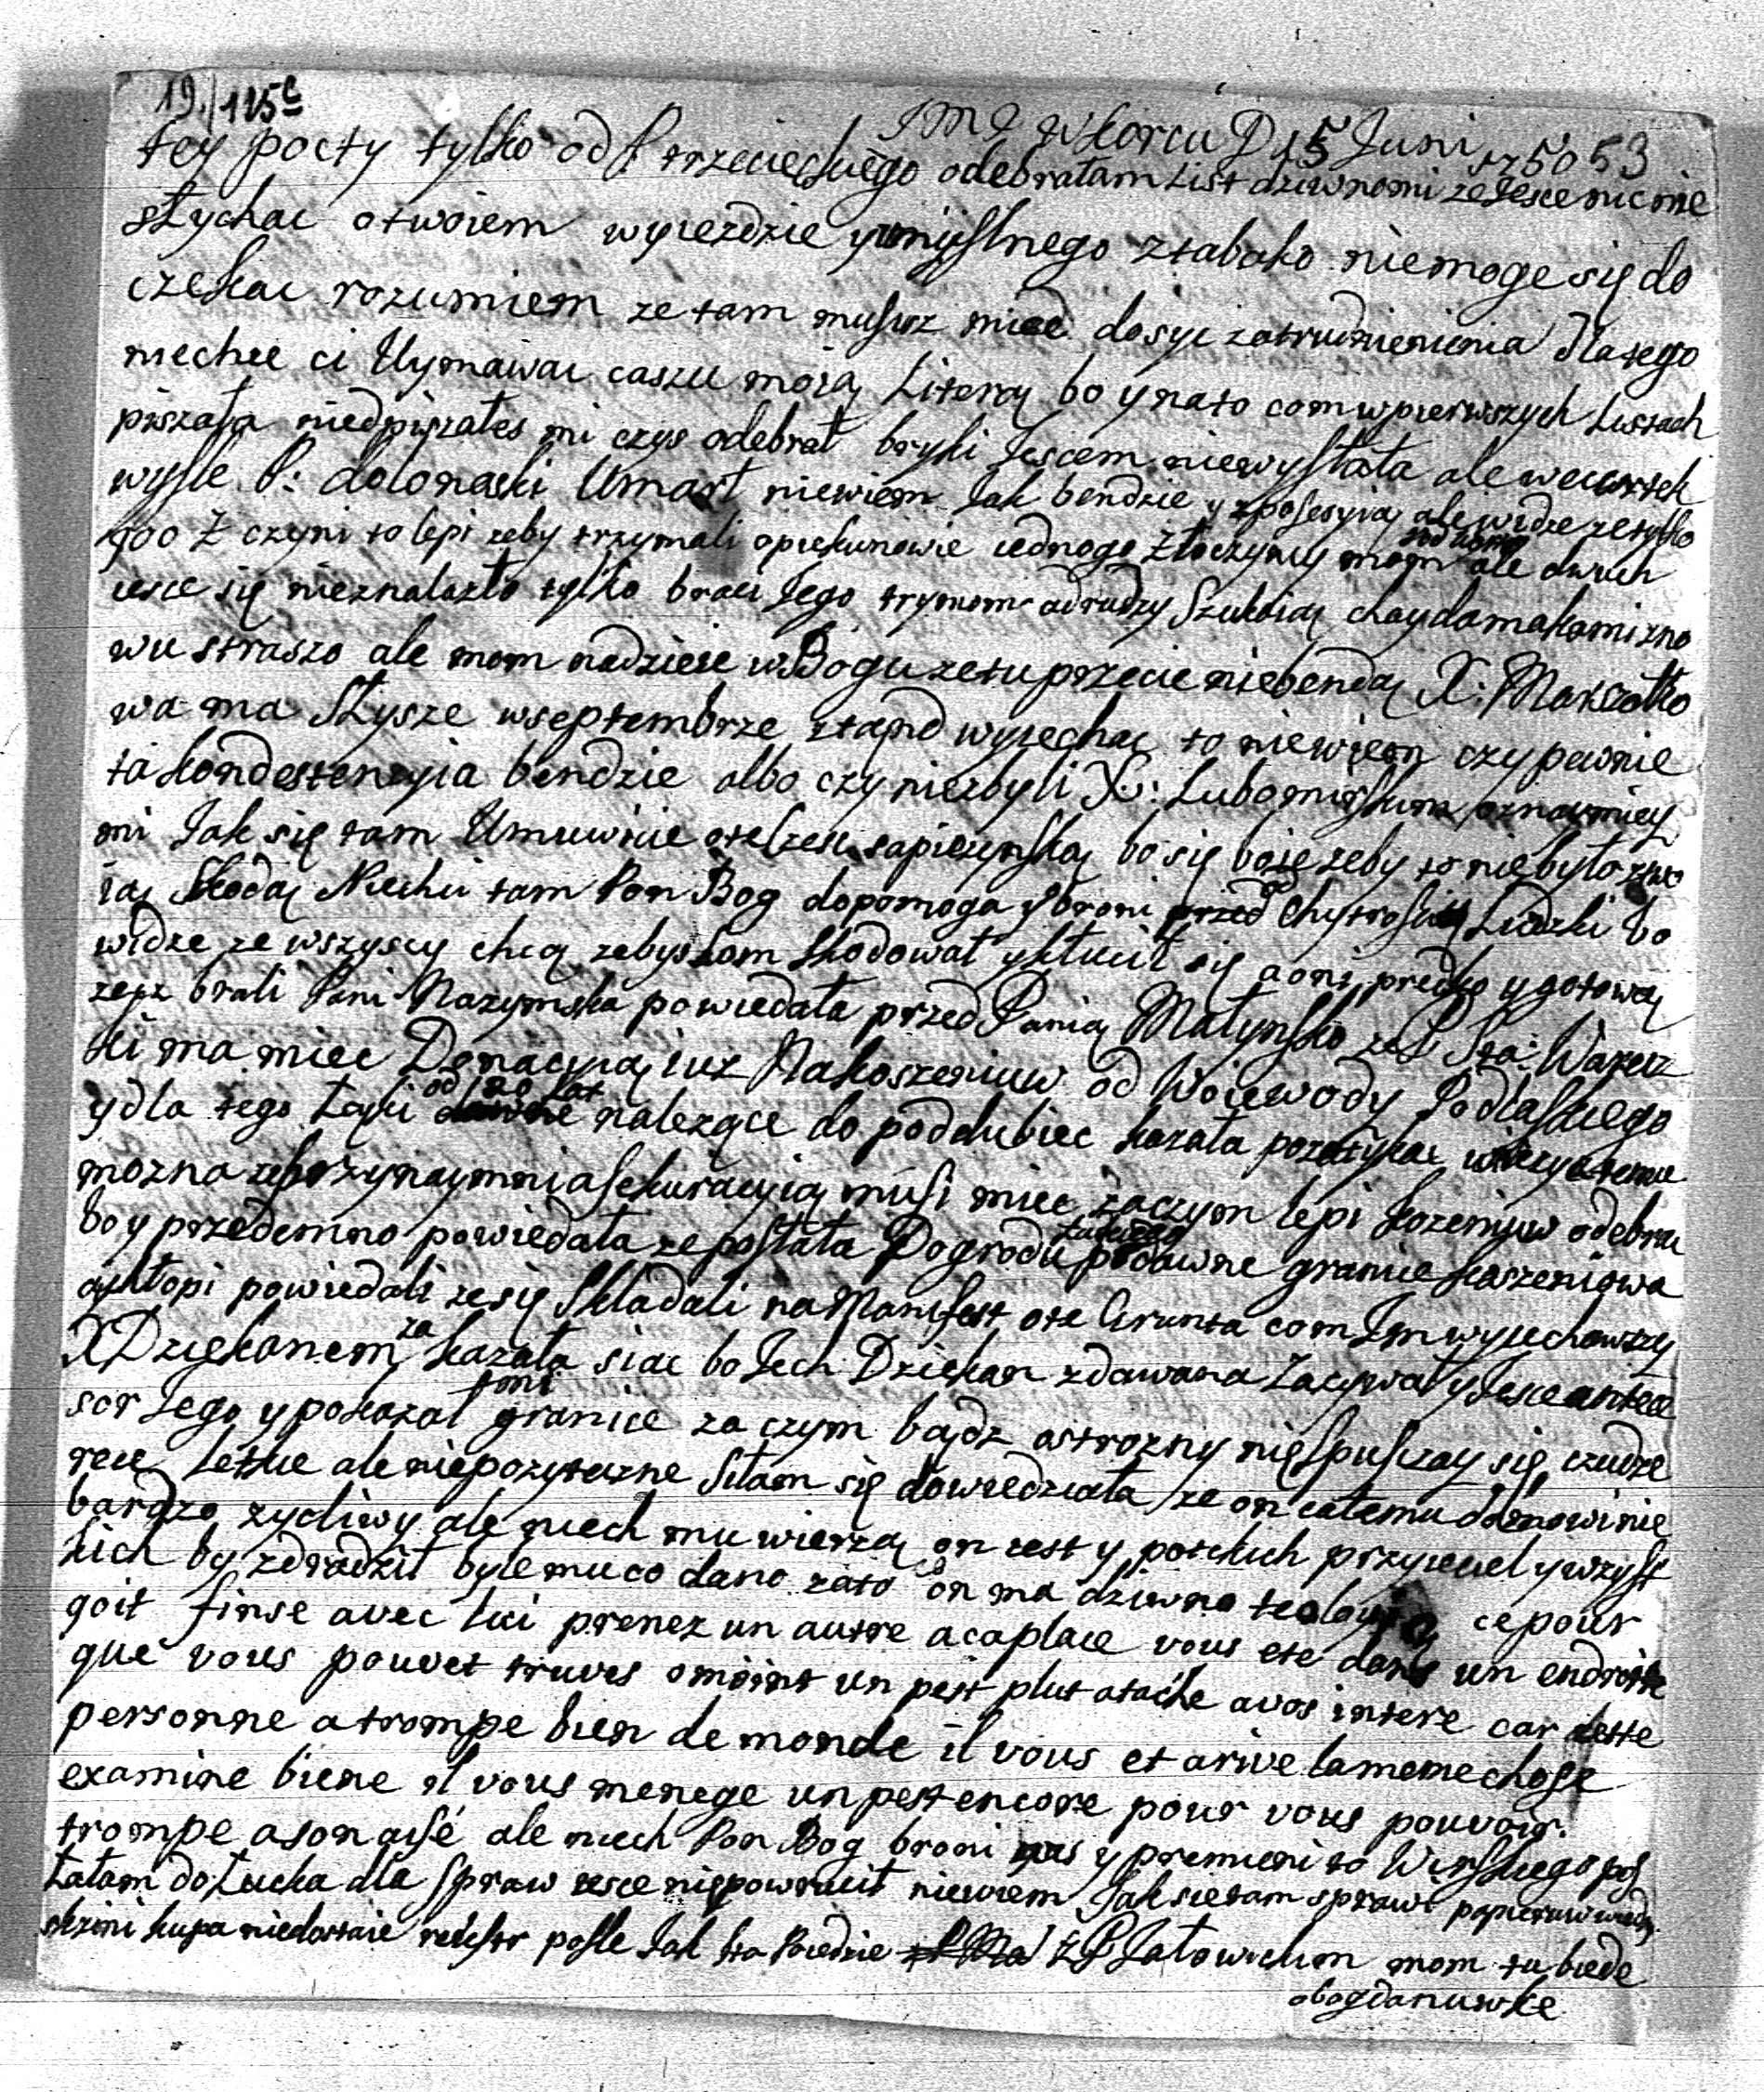 19./115c
JMJ w Korcu D 15 Juni 1750 53
tey pocty tylko od P trzecieckiego odebrałam List dziwnomi ze Jesce nic nie
słychac o twoiem wyiezdzie y umyslnego z tabako niemoge się do
czekac rozumiem ze tam musisz miec dosyc zatrudnienia dla tego
niechce ci Uymawac caszu moią Literą bo y na to com w pierwszych Listach
piszała nieodpiszałes mi czys odebrał bryki Jescem niewysłała ale we cwrtek
wysle P: dolonaski Umarł niewiem Jak bendzie y z posesyią ale widze ze tylko
900 Z czyni to lepi zeby trzymali opiekunowie iednogo złoczyncy mom ale dwuch
iesce się nieznalazło tylko braci Jego trymom adrudzy Szukaią chaydamakami zno
wu straszo ale mom nadzieie w Bogu ze tu przecie niebendą X: Marszałko
wa ma Słysze w septembrze ztąnd wyiechac to niewiem czy pewnie
ta kondestensyia bendzie albo czy niezbyli X: Lubomirskim oznaymiey
mi Jak się tam Umuwicie o te sapiezynską bo się boie zeby to niebyło z two
ią Skodą Niechci tam Pan Bog dopomoga y broni przed Chytroscią Ludzki bo
widze ze wszyscy chcą zebys tam skodował y kłucił się a oni predko y gotową
zeby brali Pani Nazymska powiedała przed Panią Małynsko ze P Sta: Waręz
ki ma miec Donacyią iuz Na koszeniuw od Woiewody Podlaskiego
od 20 lat
y dla tego Łąki dawne nalezące do poddubiec kazała
mozna ze przynaymni asekuracyią musi miec zaczym lepi kozeniuw odebrac
bo y przedemno powiedała ze posłała Do grodu po dawne granice koszeniowa
a chłopi powiedali ze się Składali na Manifest o te Grunta com Jm wyiechawszy
za
X Dziekanem kazała siac bo Jech Dziekan zdawana Zazywał y Jesce antece
sor Jego y pokazał mi granice za czym bądz ostrozny nie spuszczay się czudze
rece letkie ale niepozyteczne Siłam się dowiedziała ze on całemu domowi nie
bardzo zycliwy ale niech mu wierzą on iest y potckich przyiaciel y wszyst
kich by zdradził byle mu co dano zato on ma dziwno teologią ce pour
qoit finse avec lui prenez un autre a ca place vous ete dans un endroite
que vous pouvet truves omoint un pest plut atache a vos intere car cette
personne a trompe bien de monde il vous et arive la meme chose
examine biene il vous menege un pest encore pour vous pouvoir
trompe a son aisé ale niech Pan Bog broni nas y premieni to Wirskiego pos
łałam do Łucka dla spraw iesce niepowrucił niewiem Jak sie tam sprawi papieruw
skrzini kupa niedostaie reiestr posle Jak P Jałowickim mom tu biede
o bogdanuwke